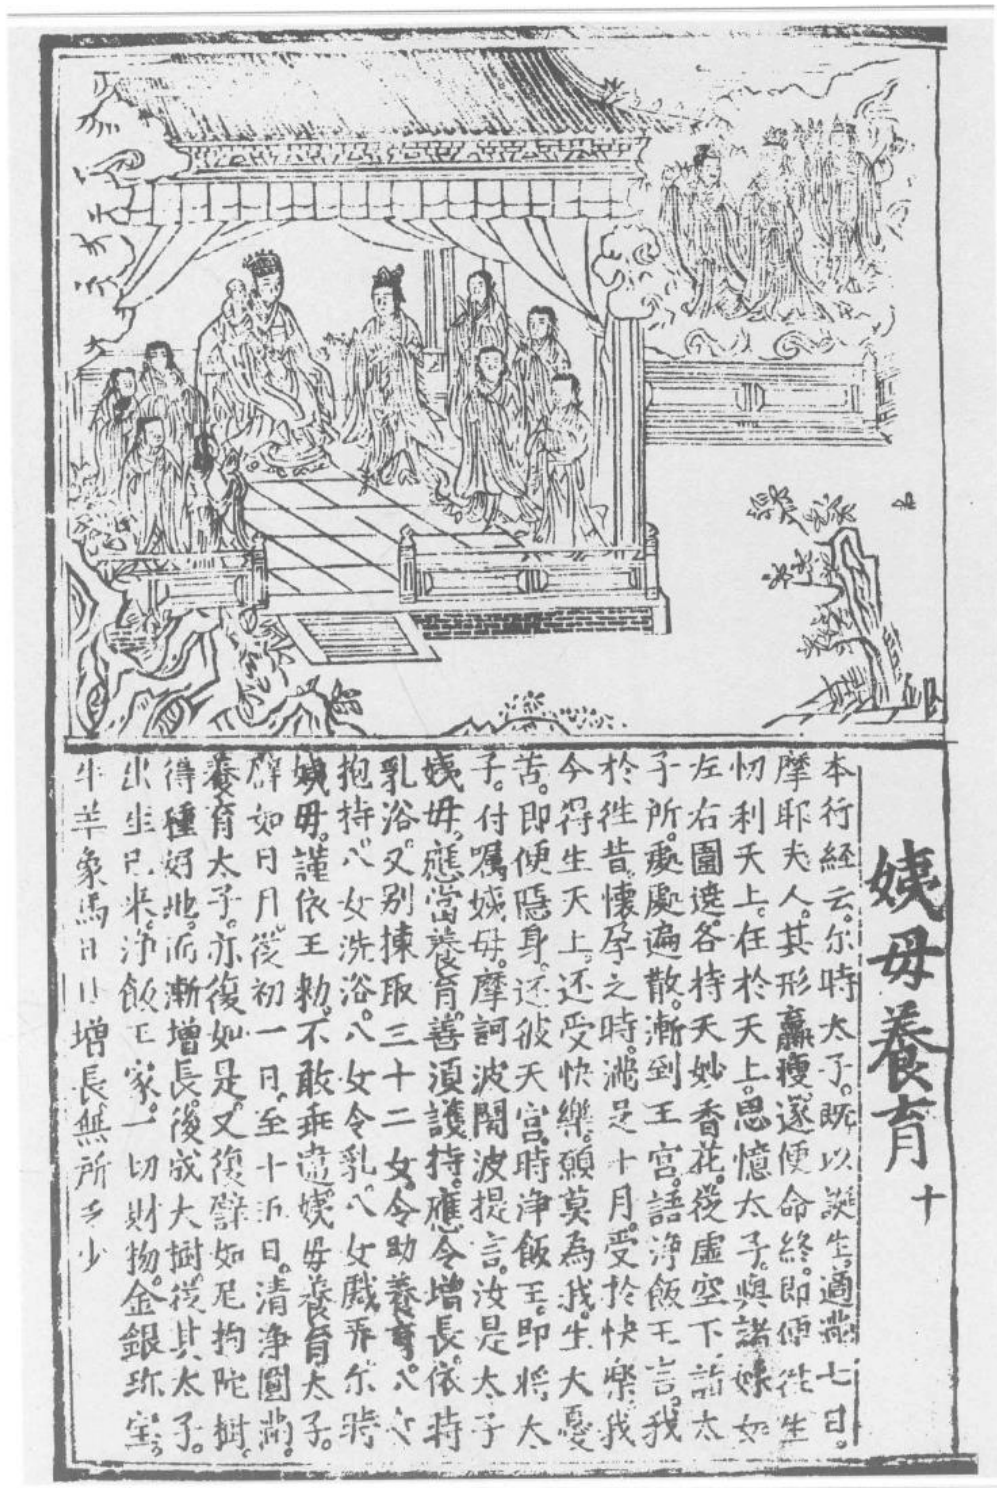 姨母養育 十
本行経云。尔時太子。既以誕生。適滿七日。
摩耶夫人。其形羸瘦。遂便命終。即便徃生
忉利天上。在於天上。思憶太子。與諸婇女
左右圍遶。各持天妙香花。從虛空下。詣太
子所。處處遍散。漸到王宮。語淨飯王言。我
於徃昔。懷孕之時。滿足十月。受於快樂。我
今得生天上。还受快樂。願莫為我。生大憂
苦。即便隱身。还彼天宮。時淨飯王。即將太
子。付嘱姨母。摩訶波闍波提言。汝是太子
姨母。應當養育。善須護持。應令增長。依時
乳浴。又别揀取三十二女。令助養育。八女
抱持。八女洗浴。八女令乳。八女戲弄尓時
姨母。謹依王勑。不敢乖違姨母養育太子。
辟如日月。從初一日。至十五日。清淨圓滿。
養育太子。亦復如是。又復譬如尼拘陀樹。
得種好地。而漸增長。後成大樹。從其太子。
出生已来。淨飯王家。一切財物。金銀珎宝。
牛羊象馬日日增長無所乏少